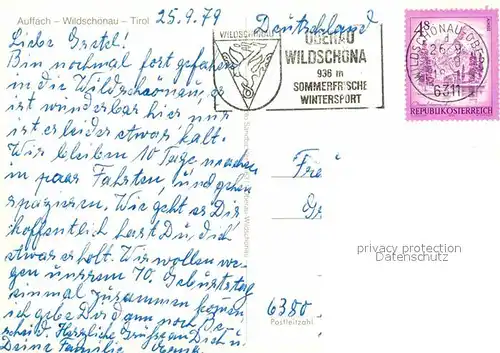 Auffach – Wildschönau – Tirol
25.9.79
Deutschland
Liebe Gretel!
Bin nochmal fort gefahren
in die Wildschönau, es
ist wunderbar hier nur
ist es leider etwas kalt.
Wir bleiben 10 Tage machen
in paar Fahrten, und gehen
spazieren. Wie geht es Dir
hoffentlich hast Du, dich
etwas erholt. Wir wollen we-
gen unserem 70. Geburtstag
einmal zusammen kommen
ich gebe Dir dann noch Be-
scheid. Herzliche Grüße an Dich u.
Deine Familie
WILDSCHÖNAU
OBERAU
WILDSCHÖNAU
936 m
SOMMERFRISCHE
WINTERSPORT
4S
WILDSCHÖNAU-OBERAU
25.9.
6311
REPUBLIK ÖSTERREICH
Fre
Gr
privacy protection
Datenschutz
6380
Postleitzahl